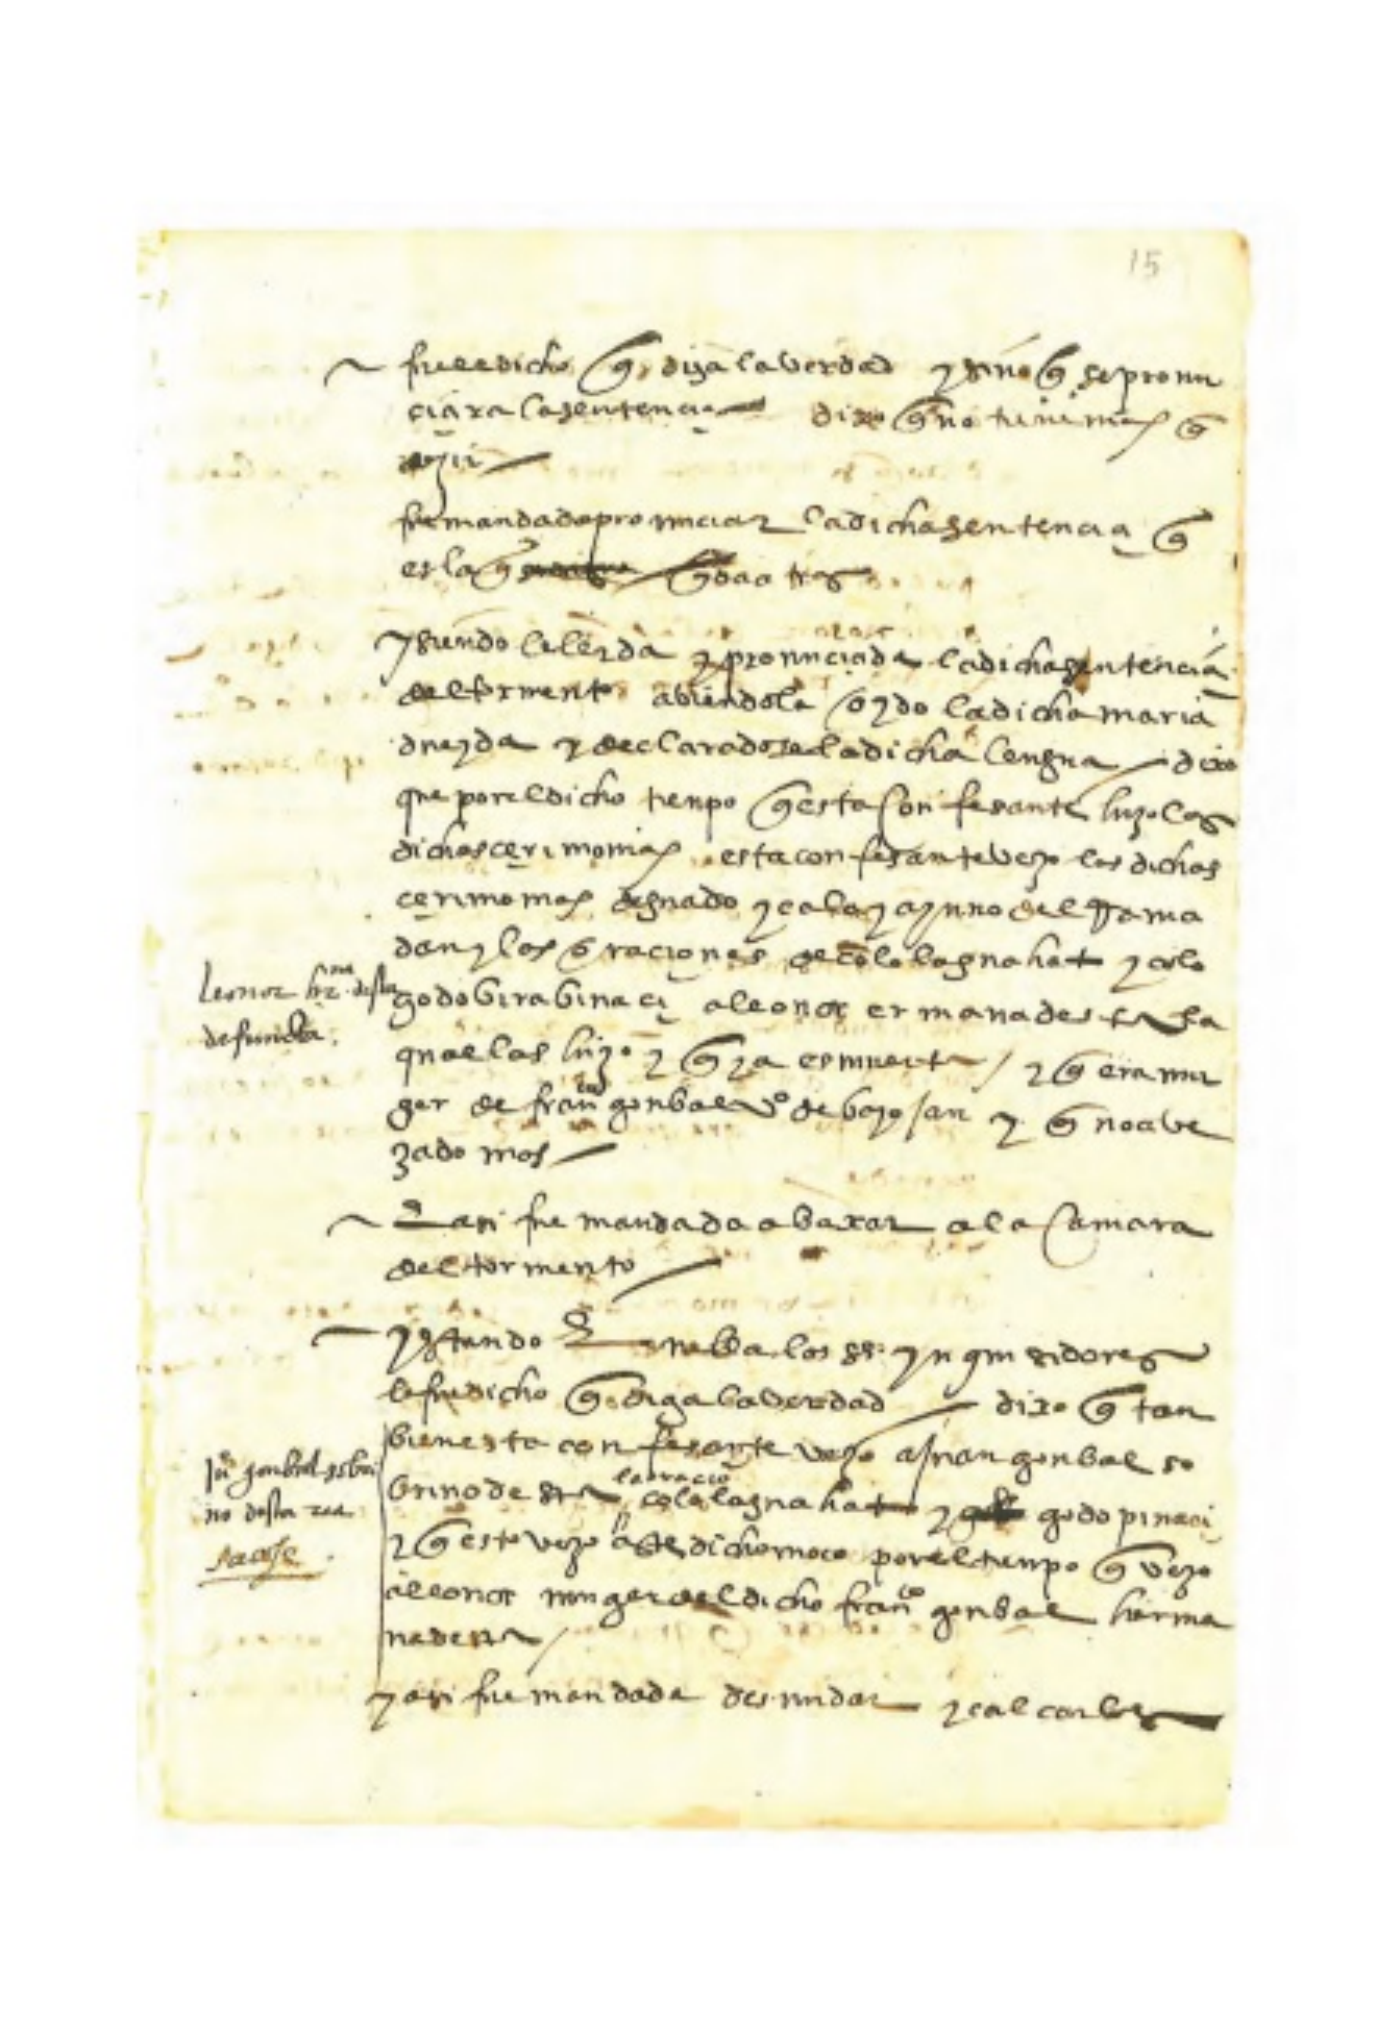 15
fuele dicho q̃ diga la verdad y sino q̃ se pronu
ciara la sentencia dixo q̃ no tiene mas q̃
dezir
fue mandado pronunciar la dicha sentencia q̃
es la q̃ q̃da atras
y siendo le leyda y pronunciada la dicha sentencia
del tormento abiendola oydo la dicha maria
oneyda y declaradosela dicha lengua dixo
que por el dicho tienpo q̃ esta confesante hizo las
dichas cerimonias esta confesante vezo las dichas
cerimonias del guado y cala y ayuno del Rama
dan y las oraciones de colo lagua hat y colo
godo bira binaci a leonor ermana desta la
qual las hizo y q̃ ya es muerta / y q̃ era mu
ger de franco gonbal vo de bayo jan y q̃ no a ve
zado mas
Leonor hrna desta
defuncta.
E asi fue mandada abaxar a la camara
del tormento
y estando En ella los ss. ynquisidores
le fue dicho q̃ diga la verdad dixo q̃ tan
bien esta confesante vezo a juan gonbal so
brino desta la oracio cola lagua hat y godo pinaci
y q̃ esto vezo a este dicho moço por el tienpo q̃ vezo
a leonor muger del dicho franco gonbal herma
na desta /
Ju gonbal sobri
no desta rea
sacose.
y asi fue mandada desnudar y calçarles